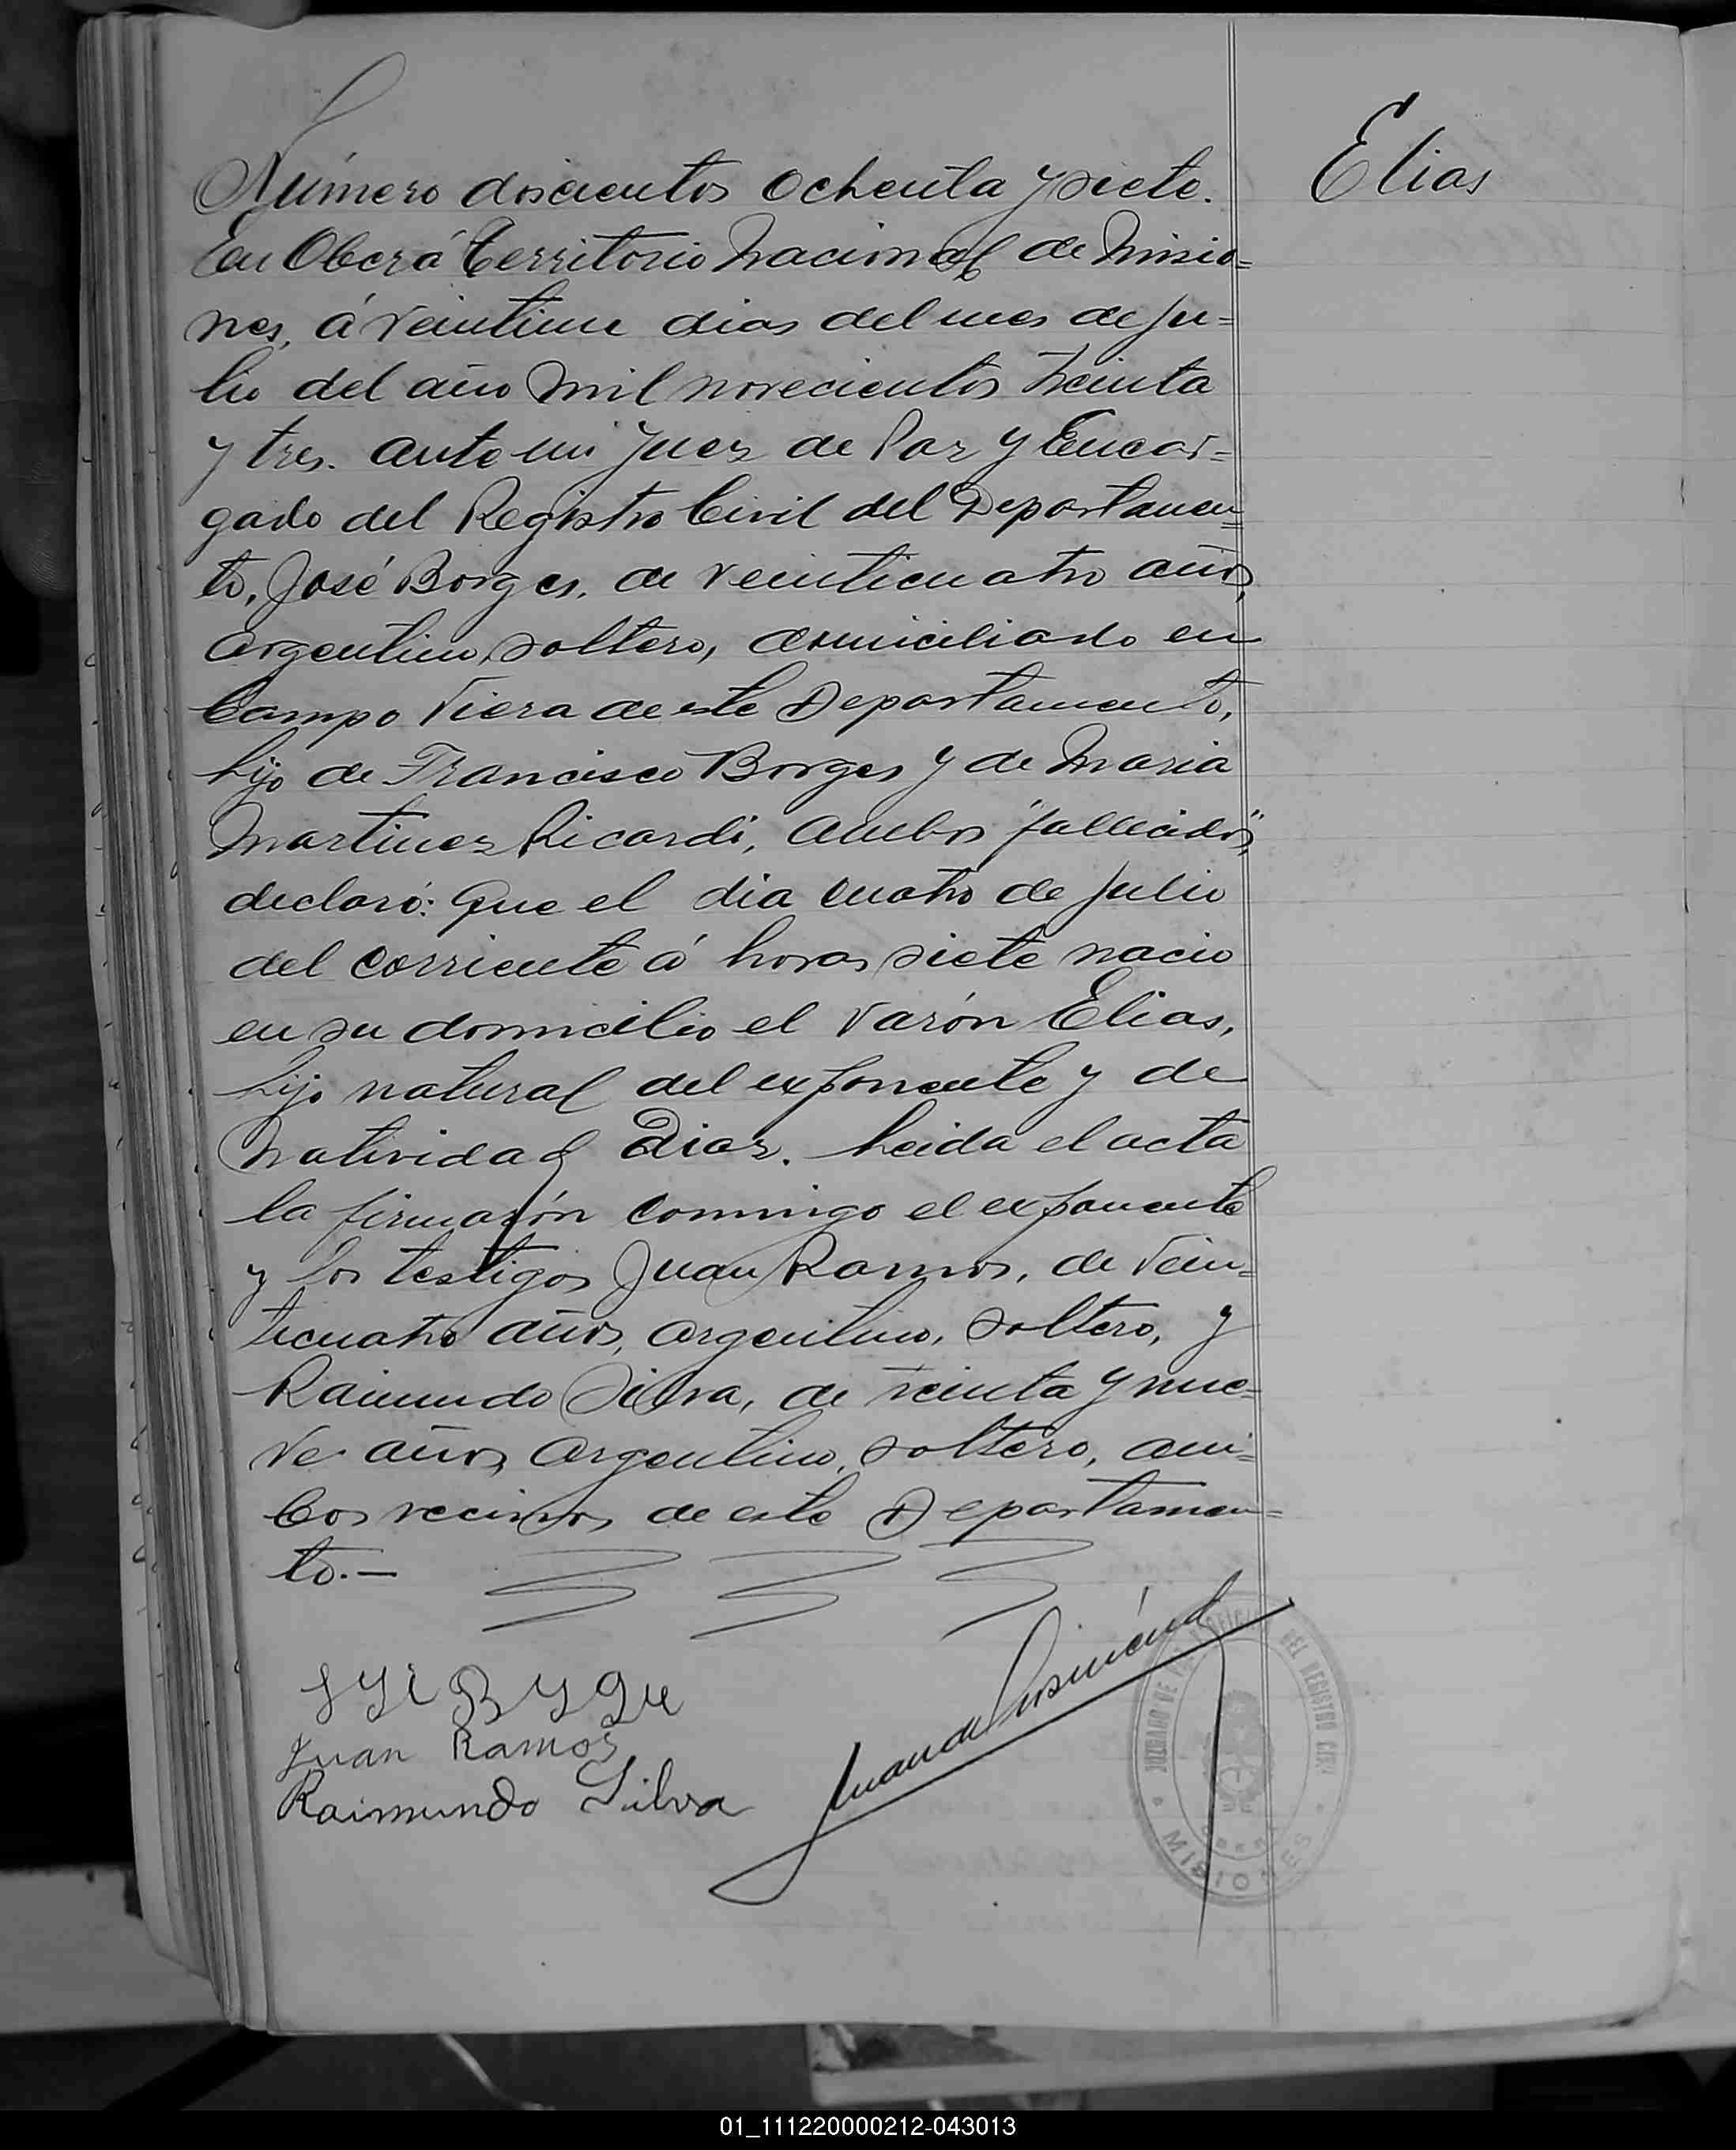 Elias
Número doscientos ochenta y siete.
En Oberá Territorio Nacional de Misio=
nes, á veintiun dias del mes de Ju=
lio del año mil novecientos treinta
y tres. ante mi Juez de Paz y Encar=
gado del Registro Civil del Departamen=
to, José Borges, de veinticuatro años,
argentino, soltero, domiciliado en
Campo Viera de este Departamento,
hijo de Francisco Borges y de Maria
Martinez Ricardi, ambos "fallecidos",
declaró: Que el dia cuatro de Julio
del corriente á horas siete nacio
en su domicilio el varón Elias,
hijo natural del exponente y de
Natividad Diaz. Leida el acta
la firmarón conmigo el exponente
y los testigos Juan Ramos, de vein=
ticuatro años, argentino, soltero, y
Raimundo Silva, de treinta y nue=
ve años, argentino, soltero, am=
bos vecinos de este Departamen=
to.—
Juan Ramos
Raimundo Silva
JUZGADO DE PAZ
DEL REGISTRO CIVIL
MISIONES
01_111220000212-043013